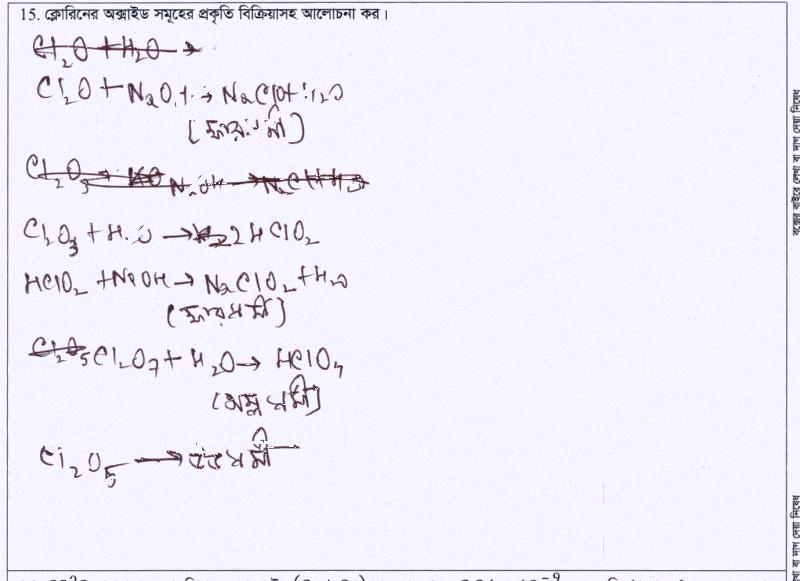 15. ক্লোরিনের অক্সাইড সমূহের প্রকৃতি বিক্রিয়াসহ আলোচনা কর।
Cl₂O + H₂O →
Cl₂O + NaOH → NaClO + H₂O
(ক্ষারধর্মী)
Cl₂O₃ + H₂O → 2HClO₂
HClO₂ + NaOH → NaClO₂ + H₂O
(ক্ষারধর্মী)
Cl₂O₇ + H₂O → HClO₄
(অম্লধর্মী)
Cl₂O₅ →
বক্সের বাইরে লেখা বা দাগ দেয়া নিষেধ
বা দাগ দেয়া নিষেধ